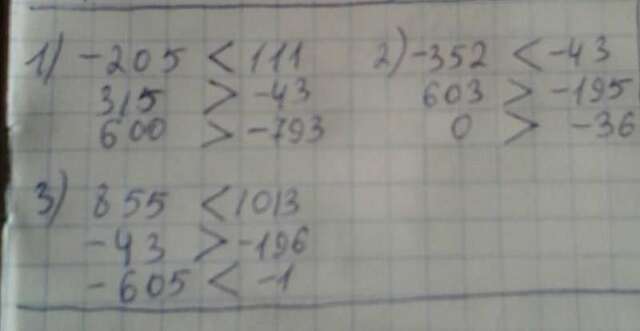 1) -205 < 111
315 > -43
600 > -793
2) -352 < -43
603 > -195
0 > -36
3) 855 < 1013
-43 > -196
-605 < -1